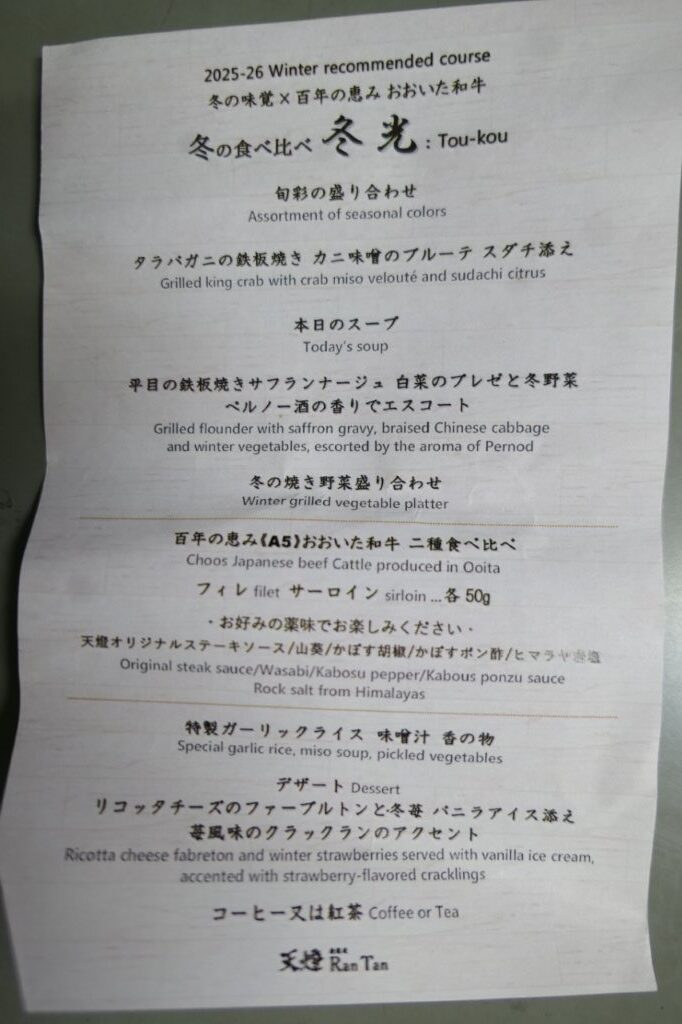 2025-26 Winter recommended course
冬の味覚×百年の恵み おおいた和牛
冬の食べ比べ 冬光 : Tou-kou
旬彩の盛り合わせ
Assortment of seasonal colors
タラバガニの鉄板焼き カニ味噌のブルーテ スダチ添え
Grilled king crab with crab miso velouté and sudachi citrus
本日のスープ
Today's soup
平目の鉄板焼きサフランナージュ 白菜のブレゼと冬野菜
ペルノー酒の香りでエスコート
Grilled flounder with saffron gravy, braised Chinese cabbage
and winter vegetables, escorted by the aroma of Pernod
冬の焼き野菜盛り合わせ
Winter grilled vegetable platter
百年の恵み《A5》おおいた和牛 二種食べ比べ
Choos Japanese beef Cattle produced in Ooita
フィレ filet サーロイン sirloin ... 各 50g
・お好みの薬味でお楽しみください・
天燈オリジナルステーキソース/山葵/かぼす胡椒/かぼすポン酢/ヒマラヤ岩塩
Original steak sauce/Wasabi/Kabosu pepper/Kabous ponzu sauce
Rock salt from Himalayas
特製ガーリックライス 味噌汁 香の物
Special garlic rice, miso soup, pickled vegetables
デザート Dessert
リコッタチーズのファーブルトンと冬苺 バニラアイス添え
苺風味のクラックランのアクセント
Ricotta cheese fabreton and winter strawberries served with vanilla ice cream,
accented with strawberry-flavored cracklings
コーヒー又は紅茶 Coffee or Tea
天燈 Ran Tan